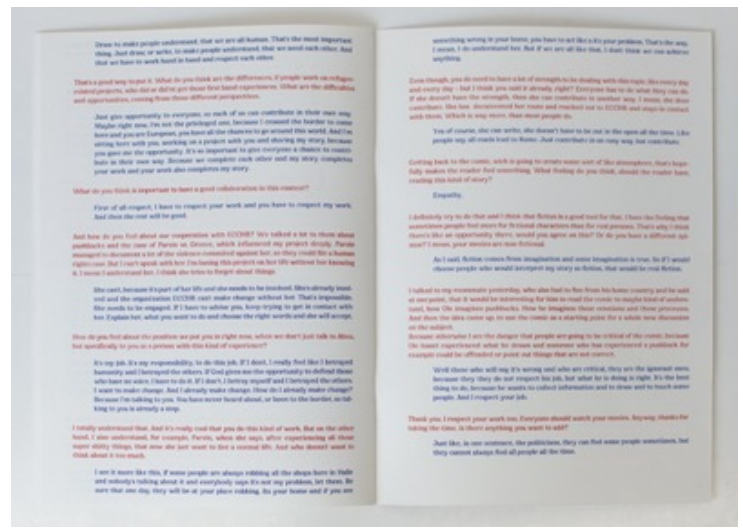 Draw to make people understand, that we are all human. That's the most important
thing. Just draw, or write, to make people understand, that we need each other. And
that we have to work hand in hand and respect each other.
That's a good way to put it. What do you think are the differences, if people work on refugee-
related projects, who did or did not get those first hand experiences. What are the difficulties
and opportunities, coming from those different perspectives.
Just give opportunity to everyone, so each of us can contribute in their own way.
Maybe right now, I'm not the privileged one, because I crossed the border to come
here and you are European, you have all the chances to go around this world. And I'm
sitting here with you, working on a project with you and sharing my story, because
you gave me the opportunity. It's so important to give everyone a chance to contri-
bute in their own way. Because we complete each other and my story completes
your work and your work also completes my story.
What do you think is important to have a good collaboration in this context?
First of all respect, I have to respect your work and you have to respect my work.
And then the rest will be good.
And how do you feel about our cooperation with ECCHR? We talked a lot to them about
pushbacks and the case of Parvin vs. Greece, which influenced my project deeply. Parvin
managed to document a lot of the violence committed against her, so they could file a human
rights case. But I can't speak with her. I'm basing this project on her life without her knowing
it. I mean I understand her. I think she tries to forget about things.
She can't, because it's part of her life and she needs to be involved. She's already invol-
ved and the organization ECCHR can't make change without her. That's impossible.
She needs to be engaged. If I have to advise you, keep trying to get in contact with
her. Explain her, what you want to do and choose the right words and she will accept.
How do you feel about the position we put you in right now, when we don't just talk to
but specifically to you as a person with this kind of experience?
It's my job. It's my responsibility, to do this job. If I don't, I really feel like I betrayed
humanity and I betrayed the others. If God gives me the opportunity to defend those
who have no voice, I have to do it. If I don't, I betray myself and I betrayed the others.
I want to make change. And I already make change. How do I already make change?
Because I'm talking to you. You have never heard about, or been to the border, so tal-
king to you is already a step.
I totally understand that. And it's really cool that you do this kind of work. But on the other
hand, I also understand, for example, Parvin, when she says, after experiencing all those
super shitty things, that now she just want to live a normal life. And who doesn't want to
think about it too much.
I see it more like this, if some people are always robbing all the shops here in Halle
and nobody's talking about it and everybody says it's not my problem, let them. Be
sure that one day, they will be at your place robbing. Its your home and if you are
something wrong in your home, you have to act like it's your problem. That's the way.
I mean, I do understand her. But if we are all like that, I don't think we can achieve
anything.
Even though, you do need to have a lot of strength to be dealing with this topic, like every day
and every day – but I think you said it already, right? Everyone has to do what they can do.
If she doesn't have the strength, then she can contribute in another way. I mean, she does
contribute. She has documented her route and reached out to ECCHR and stays in contact
with them. Which is way more, than most people do.
Yes of course, she can write, she doesn't have to be out in the open all the time. Like
people say, all roads lead to Rome. Just contribute in an easy way, but contribute.
Getting back to the comic, wich is going to create some sort of like atmosphere, that's hope-
fully makes the reader feel something. What feeling do you think, should the reader have,
reading this kind of story?
Empathy.
I definitely try to do that and I think that fiction is a good tool for that. I have the feeling that
sometimes people feel more for fictional characters than for real persons. That's why I think
there's like an opportunity there, would you agree on this? Or do you have a different opi-
nion? I mean, your movies are non-fictional.
As I said, fiction comes from imagination and some imagination is true. So if I would
choose people who would interpret my story as fiction, that would be real fiction.
I talked to my roommate yesterday, who also had to flee from his home country and he said
at one point, that it would be interesting for him to read the comic to maybe kind of unders-
tand, how Ole imagines pushbacks. How he imagines these emotions and these processes.
And then the idea came up to use the comic as a starting point for a whole new discussion
on the subject.
Because otherwise I see the danger that people are going to be critical of the comic, because
Ole hasn't experienced what he draws and someone who has experienced a pushback for
example could be offended or point out things that are not correct.
Well those who will say it's wrong and who are critical, they are the ignorant ones,
because they they do not respect his job, but what he is doing is right. It's the best
thing to do, because he wants to collect information and to draw and to touch some
people. And I respect your job.
Thank you, I respect your work too. Everyone should watch your movies. Anyway, thanks for
taking the time, is there anything you want to add?
Just like, in one sentence, the politicians, they can fool some people sometimes, but
they cannot always fool all people all the time.